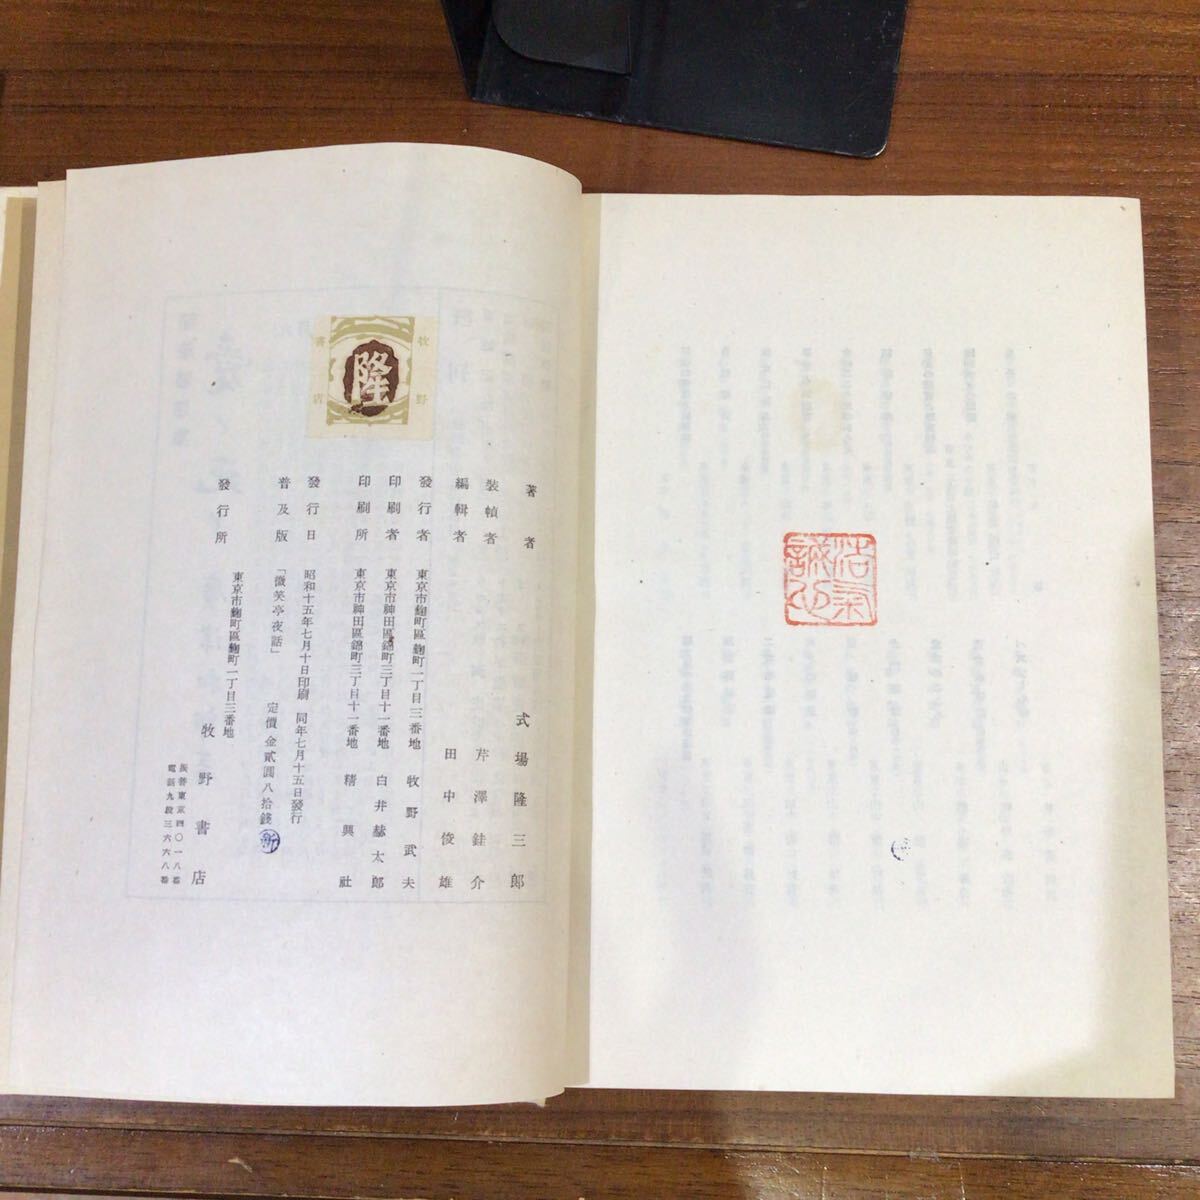 浩氣
誠心
牧野
書店
隆
著者 式場隆三郎
裝幀者 芹澤銈介
編輯者 田中俊雄
發行者 東京市麹町區麹町一丁目三番地 牧野武夫
印刷者 東京市神田區錦町三丁目十一番地 白井赫太郎
印刷所 東京市神田區錦町三丁目十一番地 精興社
發行日 昭和十五年七月十日印刷 同年七月十五日發行
普及版 「微笑亭夜話」 定價金貳圓八拾錢 新
發行所 東京市麹町區麹町一丁目三番地 牧野書店
振替東京四〇一八番
電話九段三六六八番